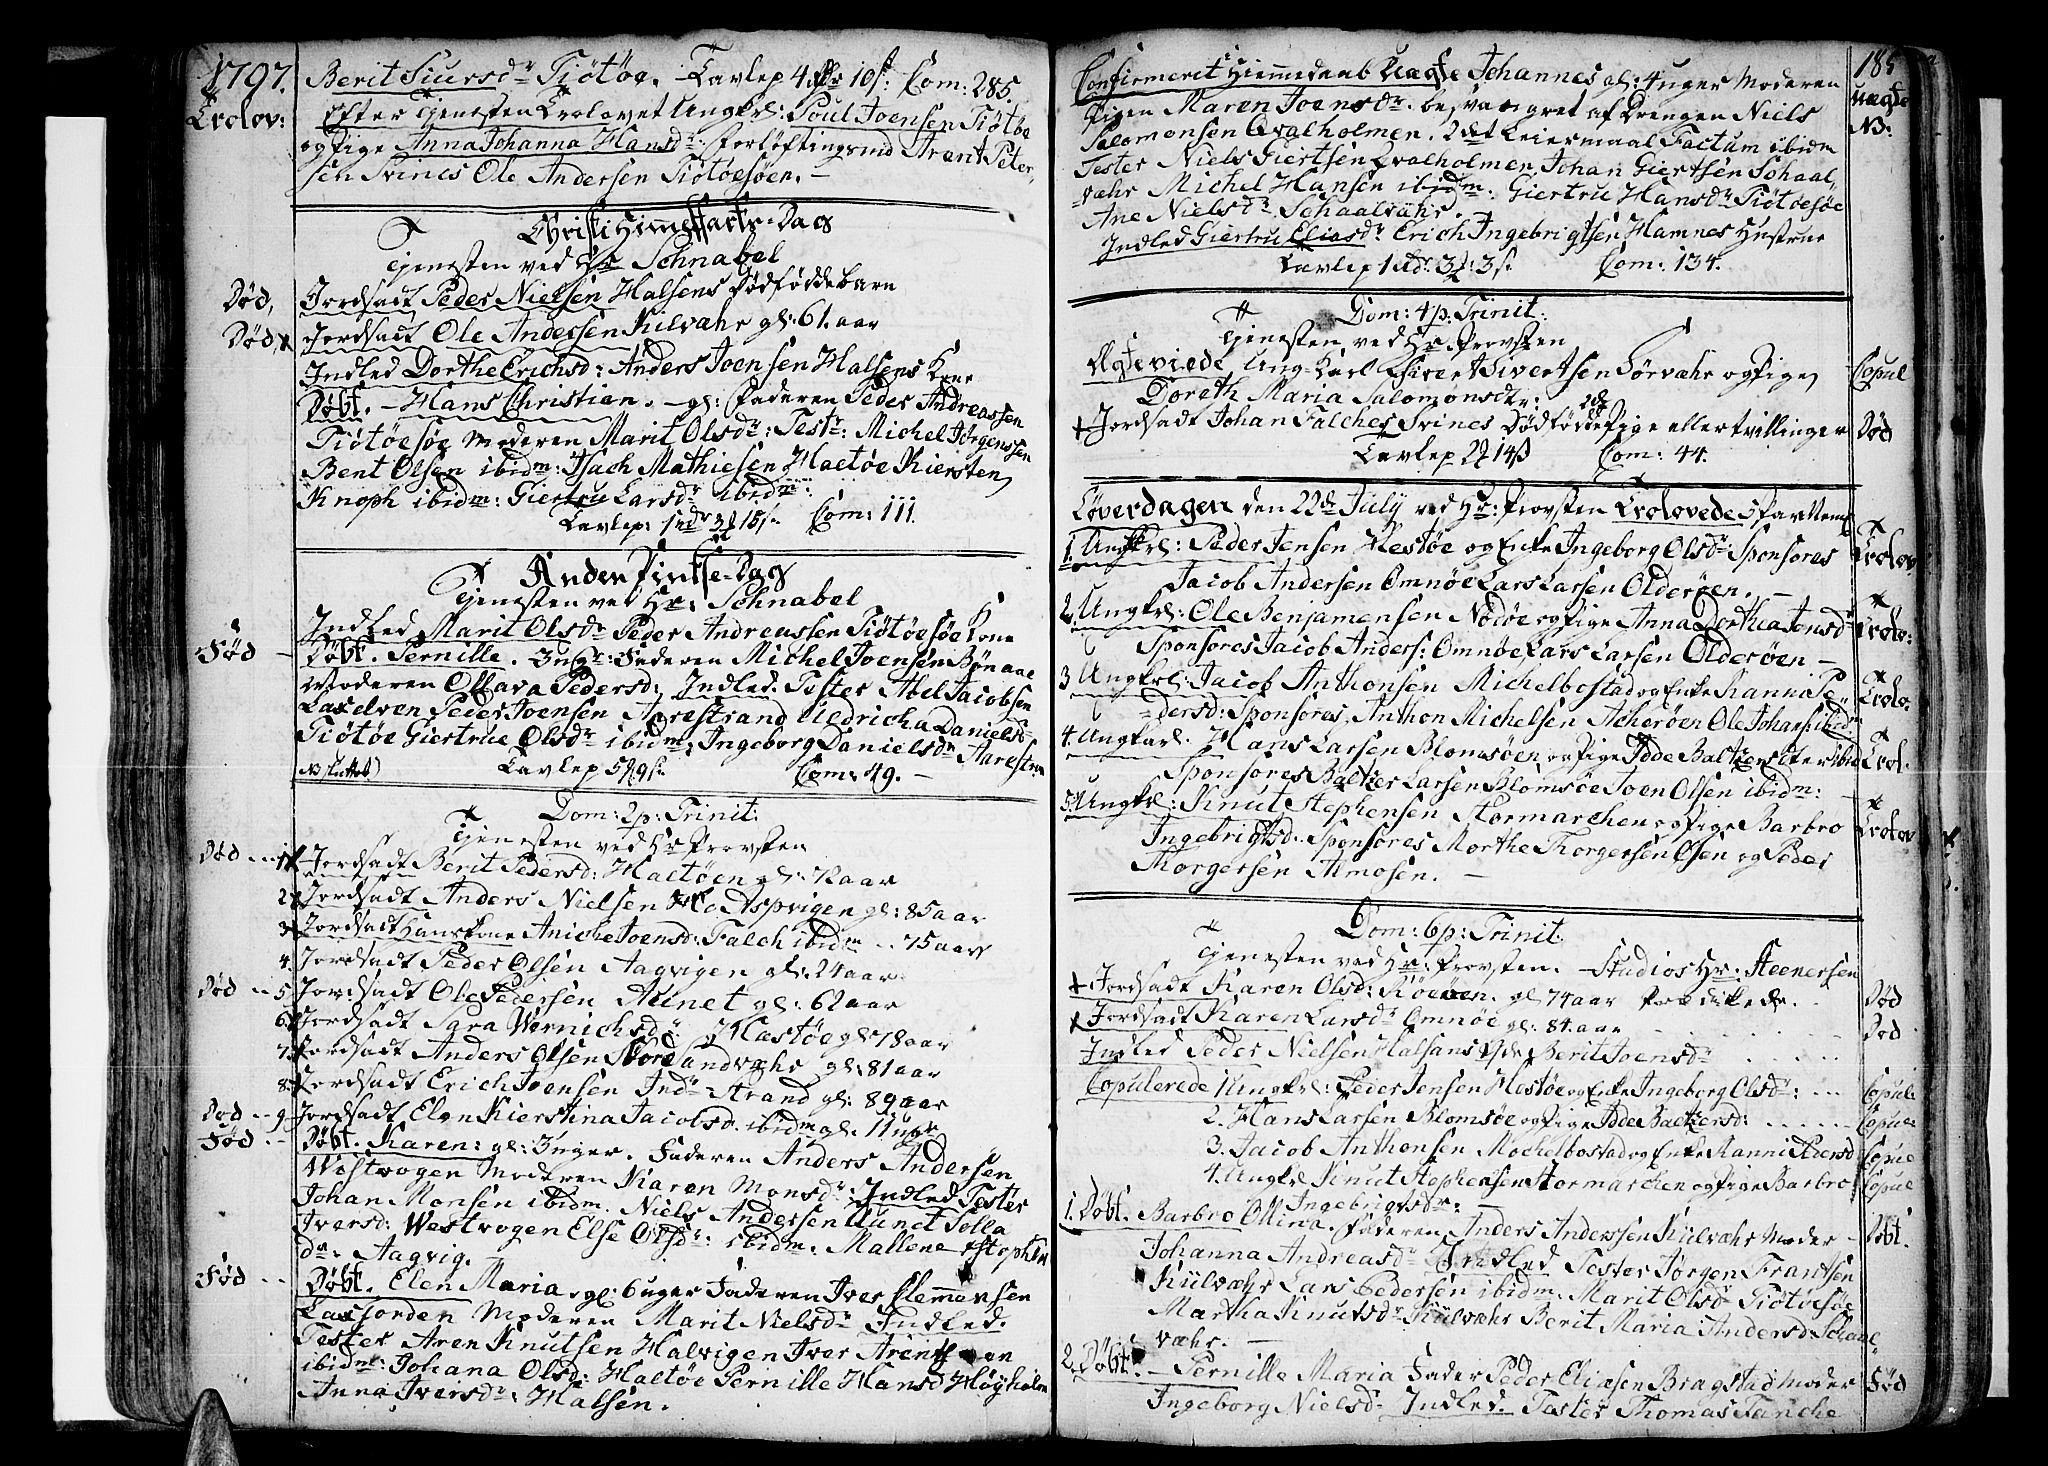 1797.
Berit Siursdr Tiötöe. Tavlep 4 10 s: Com: 285.
Trolov:
Efter Tjenesten Trolovet Ungkrl: Poul Joensen Tiötöe
og Pige Anna Johanna Hansdr: Forløftningsmd Arent Peter-
sen Ole Andersen Tiötöesöen. —
Christi Himmelfarts-Dag
Tjenesten ved Hr Schnabel
Død,
Jordsadt Peder Nielsen Halsens dødföddebarn
Død,
Jordsadt Ole Andersen Kilvahr gl: 61. aar
Indled Dorthe Erichsd: Anders Joensen Halsens Kone
Døbt. — Hans Christian. — gl: Faderen Peder Andreassen
Tiötöesöe Moderen Marit Olsdr: Testr: Michel Jørgenssen
Bent Olsen ibidm: Isach Mathiesen Haltöe Kiersten
Knoph ibidm: Giertru Larsdr ibidm:
Tavlep: 1 3 15 s. Com: 111.
Anden Pintse-Dag
Tjenesten ved Hr: Schnabel
Indled Marit Olsdr Peder Andreassen Tiötöesöe Kone
Fød
Døbt. Pernille. Faderen Michel Joensen Bönaae
Moderen Ollava Pedersd: Indled. Tester Abel Jacobsen
Laxelven Peder Joensen Aarestrand Uldricha Danielsdr
Tiötöe Giertrue Olsdr ibidm: Ingeborg Danielsdr Aarestran
Tavlep 5 9 s. Com: 49. —
Dom: 2 p: Trinit:
Tjenesten ved Hr Provsten
Død
1 Jordsadt Berit Pedersd: Haltöen gl: 72 aar
2 Jordsadt Anders Nielsen Aspvigen gl: 85 aar
3 Jordsadt Hans Kone Aniche Joensd: Falch ibidm — 75 aar
4. Jordsadt Peder Olsen Aagvigen gl: 24 aar.
Død
5 Jordsadt Ole Pedersen Alnet gl: 62 aar
6 Jordsadt Sara Wernichsdr: Hæstöe gl 78 aar
7 Jordsadt Anders Olsen Store Sandvahr gl: 81 aar
8 Jordsadt Erich Joensen Indr Strand gl: 89 aar
Død
9 Jordsadt Elen Kierstina Jacobsd. ibidm gl: 11 ugr
Fød
Døbt. Karen: gl: 3 uger. Faderen Anders Andersen
Westvogen Moderen Karen Monsdr: Indled Tester
Johan Monsen ibidm. Niels Andersen Solla
Iversd: Westvogen Else Olsdr: ibidm. Mallene Stophers
dr: Aagvig.
Fød
Døbt. Elen Maria gl: 6 uger Faderen Iver Clemmensen
Laxfjorden Moderen Marit Nielsdr Indled.
Tester Aren Knutsen Halvigen Iver Arentsen
ibidm: Johana Olsd: Haltöe Pernille Hansd Høyholm
Anna Iversdr: Halsen.
185
Confirmerit Hiemmedaab Uægte Johannes gl: 4 uger Moderen
uægte
Pigen Maren Joensdr. besvangret af Drengen Niels
NB:
Salomonsen Qvalholmen. 2det Leiermaal Factum ibidm
Tester Niels Giertsen Qvalholmen, Johan Giertsen Schaal-
væhr Michel Hansen ibidm: Giertru Hansdr Tiötöesöe
Ane Nielsdr Schaalvahr.
Indled Giertru Eliasdr Erich Ingebrigtsen Hamnes Hustrue
Tavlep 1 3 : 3 s. Com: 134.
Dom: 4 p: Trinit:
Tjenesten ved Hr Provsten
Ægteviede Ung-Karl Sivert Sivertsen Sørvahr og Pige
Copul
Doreth Maria Salomonsdr:
Jordsadt Johan Falches dødfødde 2de Pige eller tvillinger
Død
Tavlep 2 14 s Com: 44.
Løverdagen den 22de July ved Hr: Provsten Trolovede 5 Par Nem
1. Ungkrl: Peder Jensen Hestöe og Enke Ingeborg Olsdr: Sponsores
Trolov
Jacob Andersen Omnöe Lars Larsen Olderöen. —
2. Ungkrl: Ole Benjamensen Nödöe og Pige Anna Dorthea Jensdr
Trolo:
Sponsores Jacob Anders: Omnöe Lars Larsen Olderöen —
3 Ungkrl: Jacob Anthonsen Michelbostad og Enke Ranni Pe-
Trolo:
dersd: Sponsores, Anthon Michelsen Acheröen Ole Johans: ibidm
4. Ungkarl. Hans Larsen Blomsöen og Pige Idde Baltzersdter ibid
Trol.
Sponsores Baltzer Larsen Blomsöe Joen Olsen ibidm:
5. Ungkrl: Knut Stephensen Stormarchen og Pige Barbro
Trolov
Ingebrigtsd: Sponsores Morthe Thorgersen Olsen og Peder
Thorgersen Almosen. —
Dom: 6 p: Trinit:
Tjenesten ved Hr: Provsten. — Studios Hr. Steenersen
Jordsadt Karen Olsd: Röeöen. gl 74 aar prædikede.
Død
Jordsadt Karen Larsdr Omnöe gl: 84. aar
Død
Indled Peder Nielsen Halsans Berit Joensdr
Copulerede 1 Ungkrl: Peder Jensen Hestöe og Enke Ingeborg Olsdr:
Copul:
2. Hans Larsen Blomsöe og Pige Idde Baltzersd:
Copul:
3. Jacob Anthonsen Mochelbostad og Enke Ranni Pedersd
Copul
4. Ungkrl Knut Stephensen Stormarchen og Pige Barbro
Copul
Ingebrigtsdr:
1. Døbt. Barbro Ollina. Faderen Anders Anderssen Kiilvahr Moder
Døbt.
Johanna Andreasdr Indled Tester Jørgen Frantsen
Kiilvahr Lars Pedersen ibidm. Marit Olsdr Tiötöesöe
Martha Knutsdr Kiilvahr Berit Maria Andersd: Schaal-
væhr. —
2. Døbt. — Pernille Maria Fader Peder Eliasen Bragstad Moder
Fød
Ingeborg Nielsd: Indled. Tester Thomas Tanche